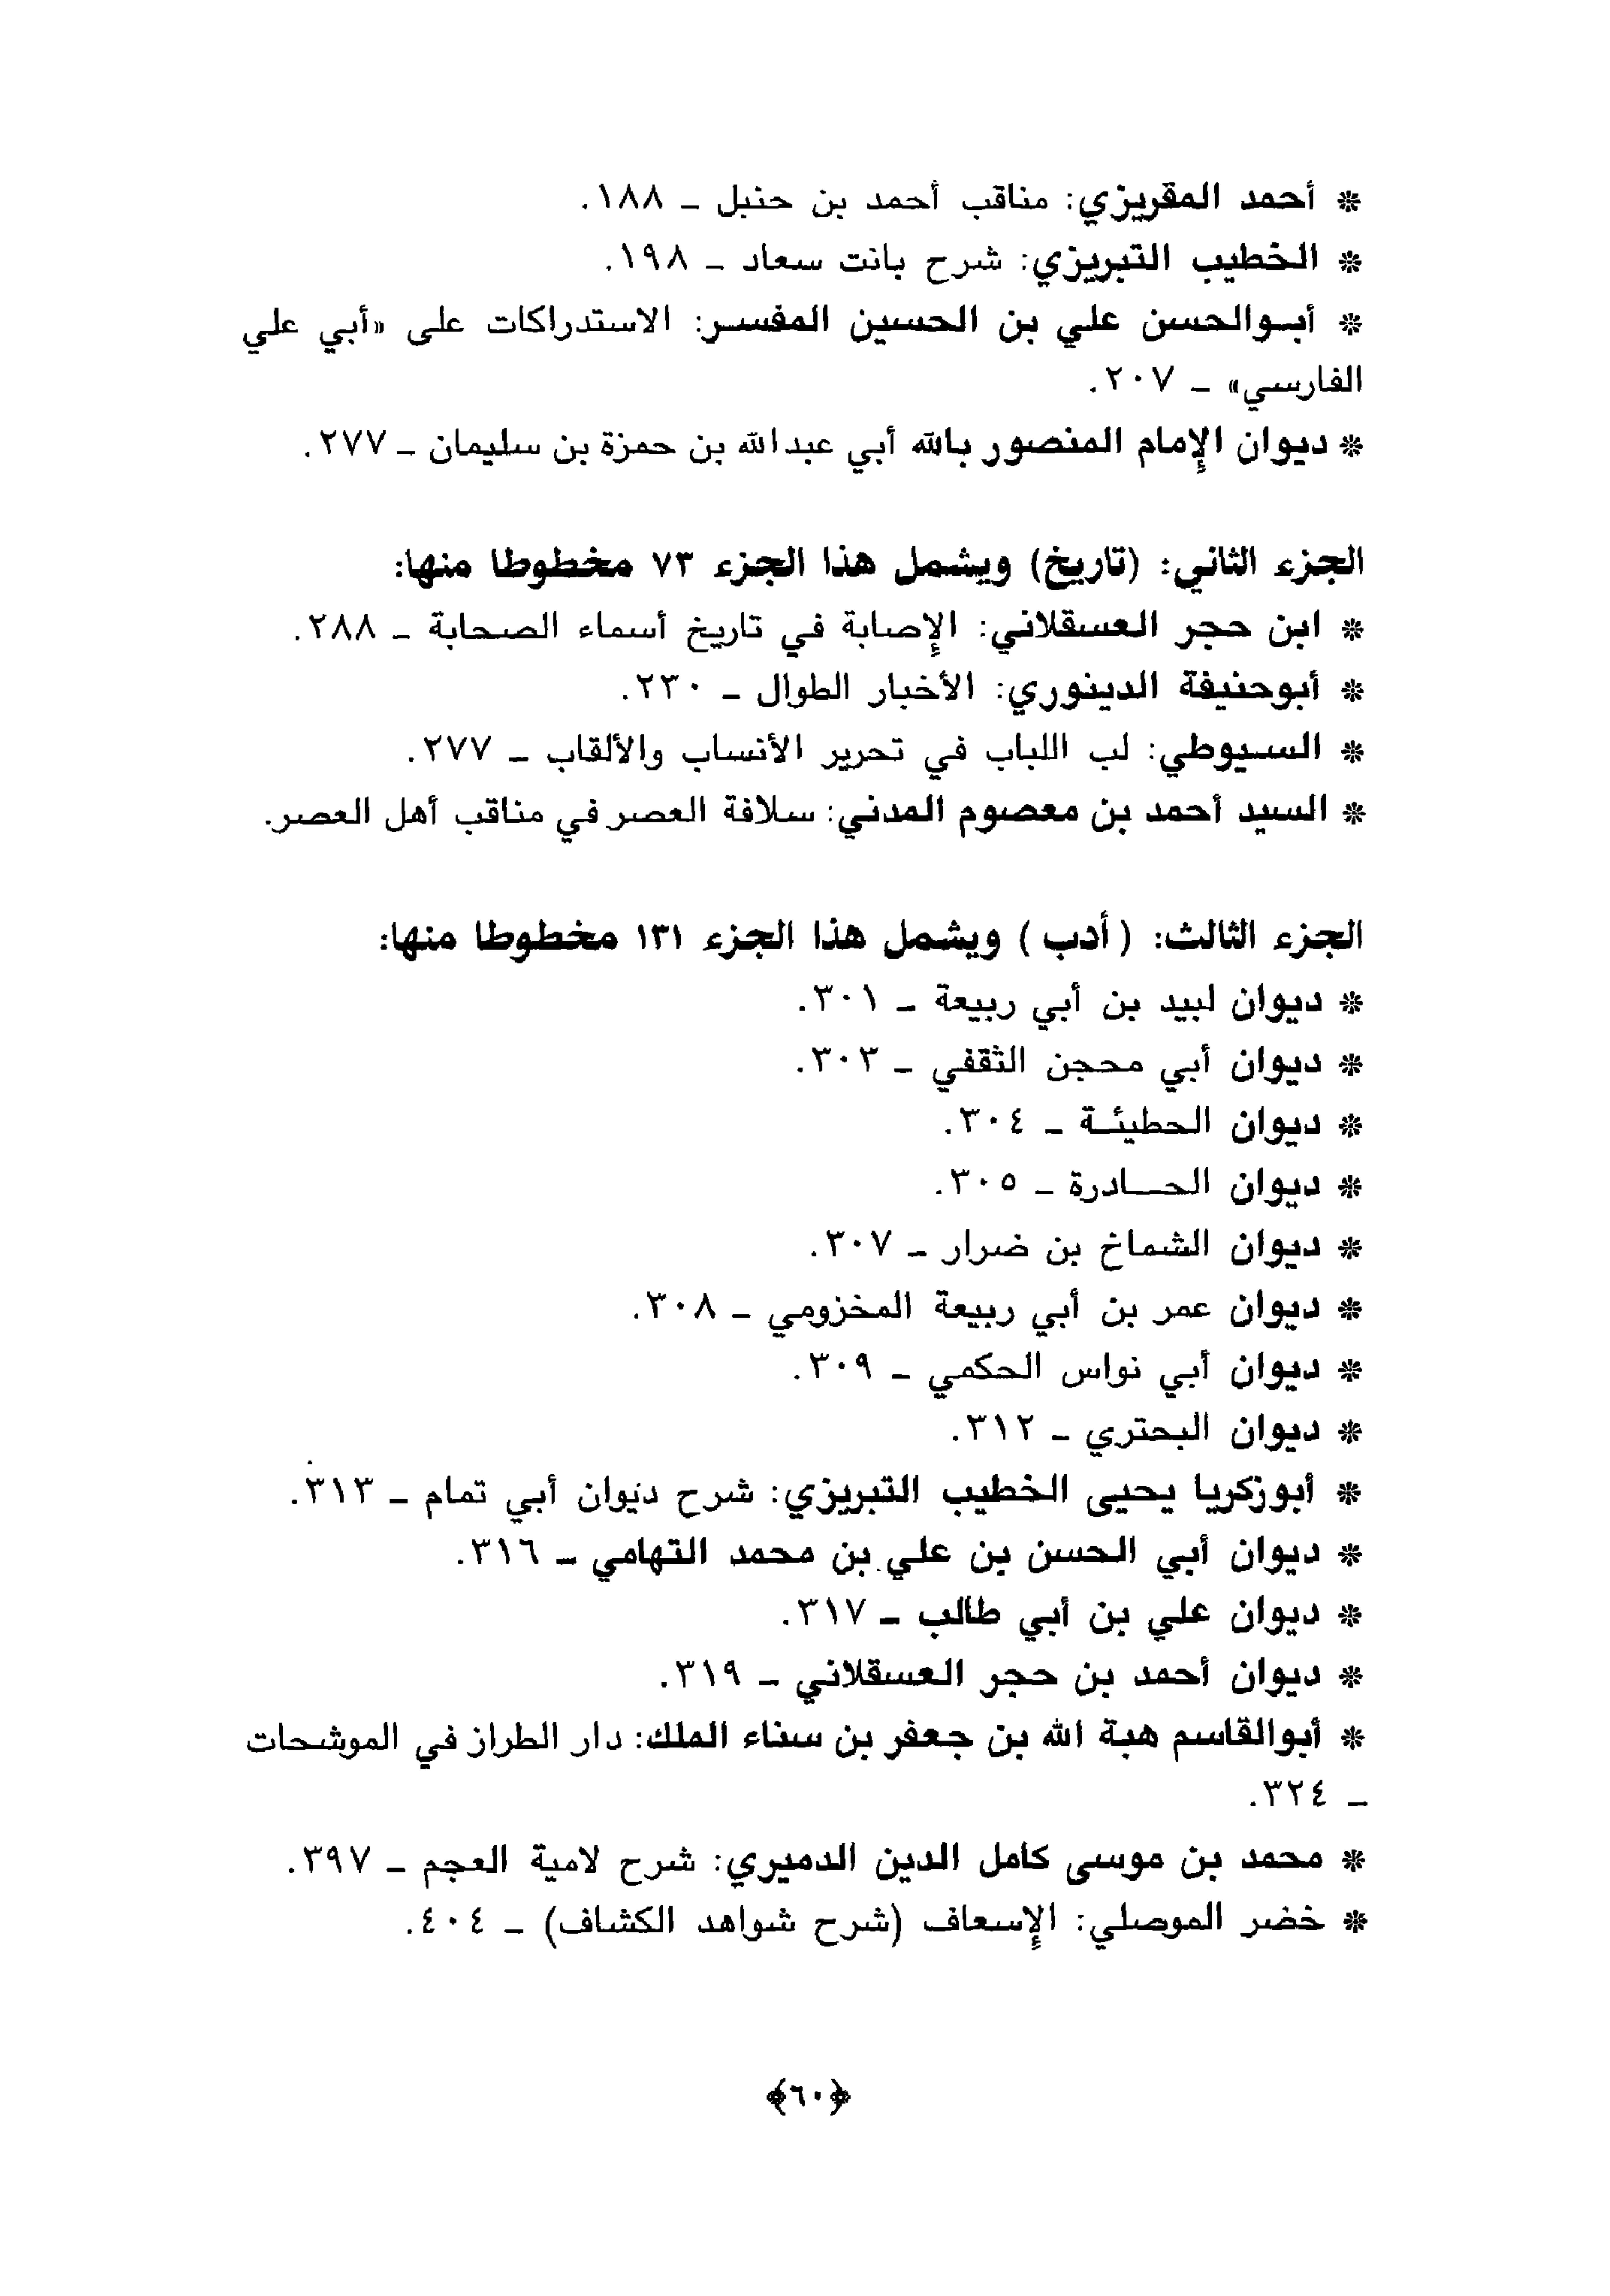 ❊ أحمد المقريزي: مناقب أحمد بن حنبل ـ ١٨٨.
❊ الخطيب التبريزي: شرح بانت سعاد ـ ١٩٨.
❊ أبـوالحسن علي بن الحسين المفسـر: الاستدراكات على «أبي علي
الفارسي» ـ ٢٠٧.
❊ ديوان الإمام المنصور بالله أبي عبدالله بن حمزة بن سليمان ـ ٢٧٧.
الجزء الثاني: (تاريخ) ويشمل هذا الجزء ٧٣ مخطوطا منها:
❊ ابن حجر العسقلاني: الإصابة في تاريخ أسماء الصحابة ـ ٢٨٨.
❊ أبوحنيفة الدينوري: الأخبار الطوال ـ ٢٣٠.
❊ السـيوطي: لب اللباب في تحرير الأنساب والألقاب ـ ٢٧٧.
❊ السيد أحمد بن معصوم المدني: سلافة العصر في مناقب أهل العصر.
الجزء الثالث: (أدب) ويشمل هذا الجزء ١٣١ مخطوطا منها:
❊ ديوان لبيد بن أبي ربيعة ـ ٣٠١.
❊ ديوان أبي محجن الثقفي ـ ٣٠٣.
❊ ديوان الحطيئـة ـ ٣٠٤.
❊ ديوان الحـــادرة ـ ٣٠٥.
❊ ديوان الشماخ بن ضرار ـ ٣٠٧.
❊ ديوان عمر بن أبي ربيعة المخزومي ـ ٣٠٨.
❊ ديوان أبي نواس الحكمي ـ ٣٠٩.
❊ ديوان البحتري ـ ٣١٢.
❊ أبوزكريا يحيى الخطيب التبريزي: شرح ديوان أبي تمام ـ ٣١٣.
❊ ديوان أبي الحسن بن علي بن محمد التهامي ـ ٣١٦.
❊ ديوان علي بن أبي طالب ـ ٣١٧.
❊ ديوان أحمد بن حجر العسقلاني ـ ٣١٩.
❊ أبوالقاسم هبة الله بن جعفر بن سناء الملك: دار الطراز في الموشحات
ـ ٣٢٤.
❊ محمد بن موسى كامل الدين الدميري: شرح لامية العجم ـ ٣٩٧.
❊ خضر الموصلي: الإسعاف (شرح شواهد الكشاف) ـ ٤٠٤.
﴿٦٠﴾